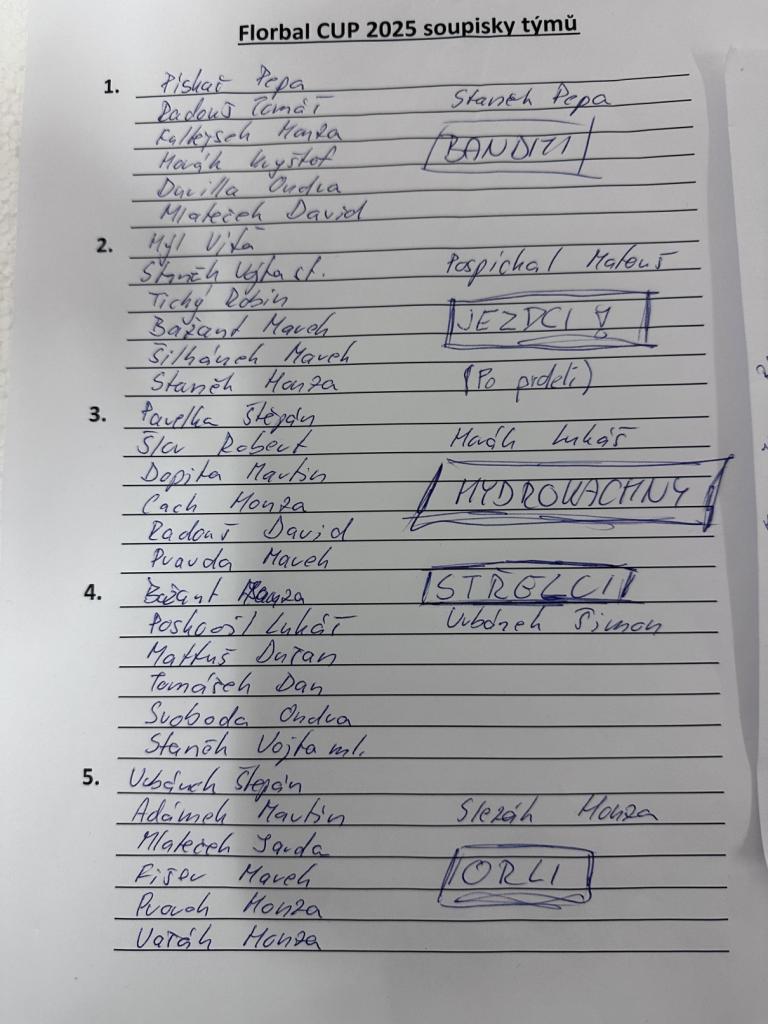 Florbal CUP 2025 soupisky týmů
1. Pískač Pepa
Radouš Tomáš Staněk Pepa
Honza BANDITI
Novák Kryštof
Davilla Ondra
Mlateček David
2. Mýl Víťa
Staněk Vojta st. Pospíchal Matouš
Tichý Robin
Bažant Marek JEZDCI !
Šilhánek Marek
Staněk Honza (Po prdeli)
3. Pavelka Štěpán
Šlor Robert Novák Lukáš
Dopita Martin
Cach Honza HYDROKACHNY
Radouš David
Pravda Marek
4. Bažant Honza STŘELCI
Poskočil Lukáš Urbánek Šimon
Mattuš Dušan
Tomášek Dan
Svoboda Ondra
Staněk Vojta ml.
5. Urbánek Štěpán
Adámek Martin Slezák Honza
Mlateček Jarda
Fišer Marek ORLI
Honza
Vašák Honza